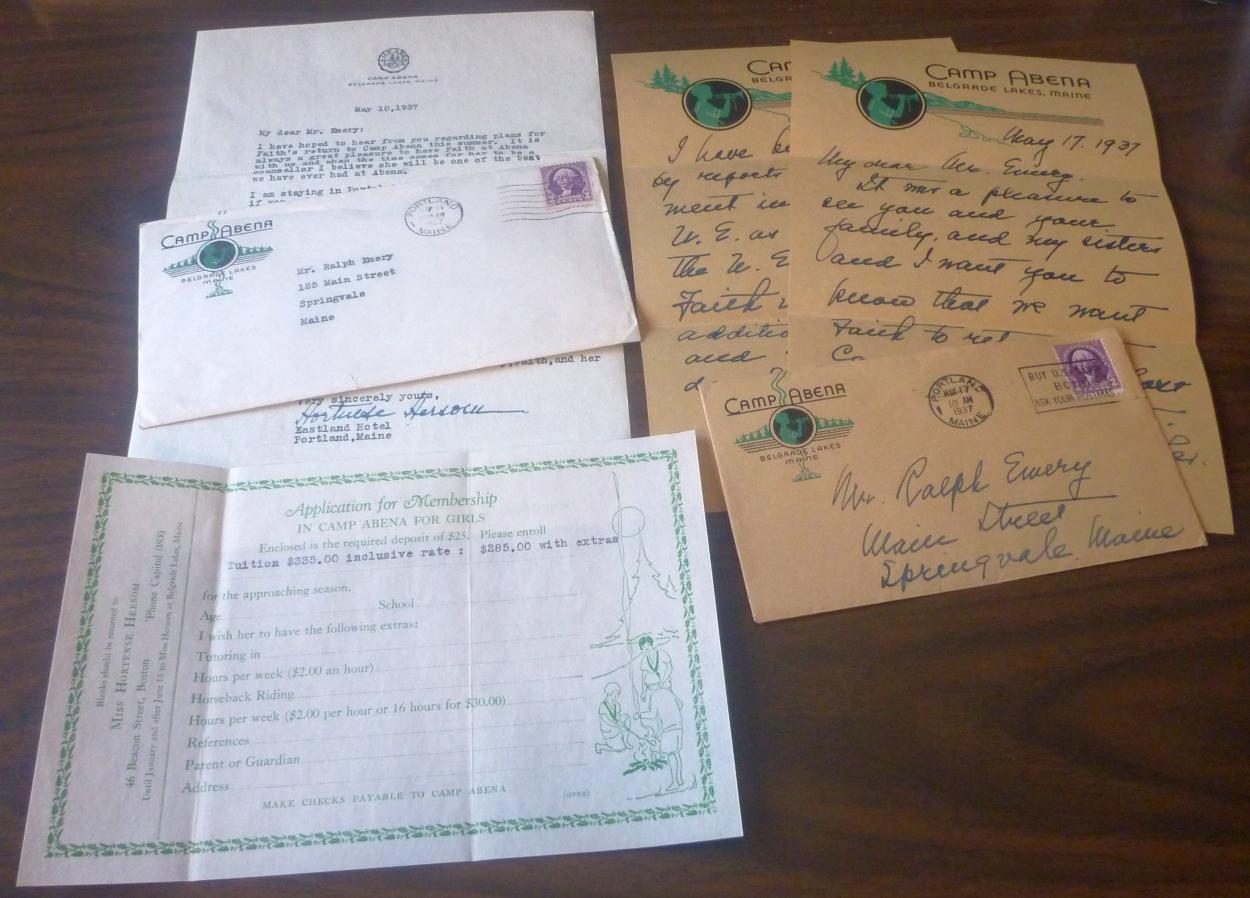 CAMP ABENA
BELGRADE LAKES, MAINE
May 10,1937
My dear Mr. Emery:
I have hoped to hear from you regarding plans for
Faith's return to Camp Abena this summer. It is
always a great pleasure to have Faith at Abena
with us and when the time comes for her to be a
counsellor I believe she will be one of the best
we have ever had at Abena.
I am staying in
if you
CAMP ABENA
BELGRADE LAKES
MAINE
PORTLAND
MAINE
Mr. Ralph Emery
125 Main Street
Springvale
Maine
Faith,and her
Very sincerely yours,
Hortense Hersom
Eastland Hotel
Portland,Maine
Application for Membership
IN CAMP ABENA FOR GIRLS
Enclosed is the required deposit of $25. Please enroll
Tuition $335.00 inclusive rate : $285.00 with extras
for the approaching season.
Age School
I wish her to have the following extras:
Tutoring in
Hours per week ($2.00 an hour)
Horseback Riding
Hours per week ($2.00 per hour or 16 hours for $30.00)
References
Parent or Guardian
Address
MAKE CHECKS PAYABLE TO CAMP ABENA (OVER)
Blanks should be returned to
MISS HORTENSE HERSOM
46 Beacon Street, Boston 'Phone Capitol 0800
Until January and after June 15 to Miss Hersom at Belgrade Lakes, Maine
CAM
BELG
I have
by reports
ment in
U. E. as
the U. E
Faith
additio
and
CAMP ABENA
BELGRADE LAKES, MAINE
May 17. 1937
My dear Mr. Emery.
It was a pleasure to
see you and your
family, and my sisters
and I want you to
know that we want
Faith to ret
CAMP ABENA
BELGRADE LAKES
MAINE
PORTLAND
MAY 17
10 AM
1937
MAINE
BUY U.S.
ASK YOUR POSTMAS
Mr. Ralph Emery
Main Street
Springvale, Maine